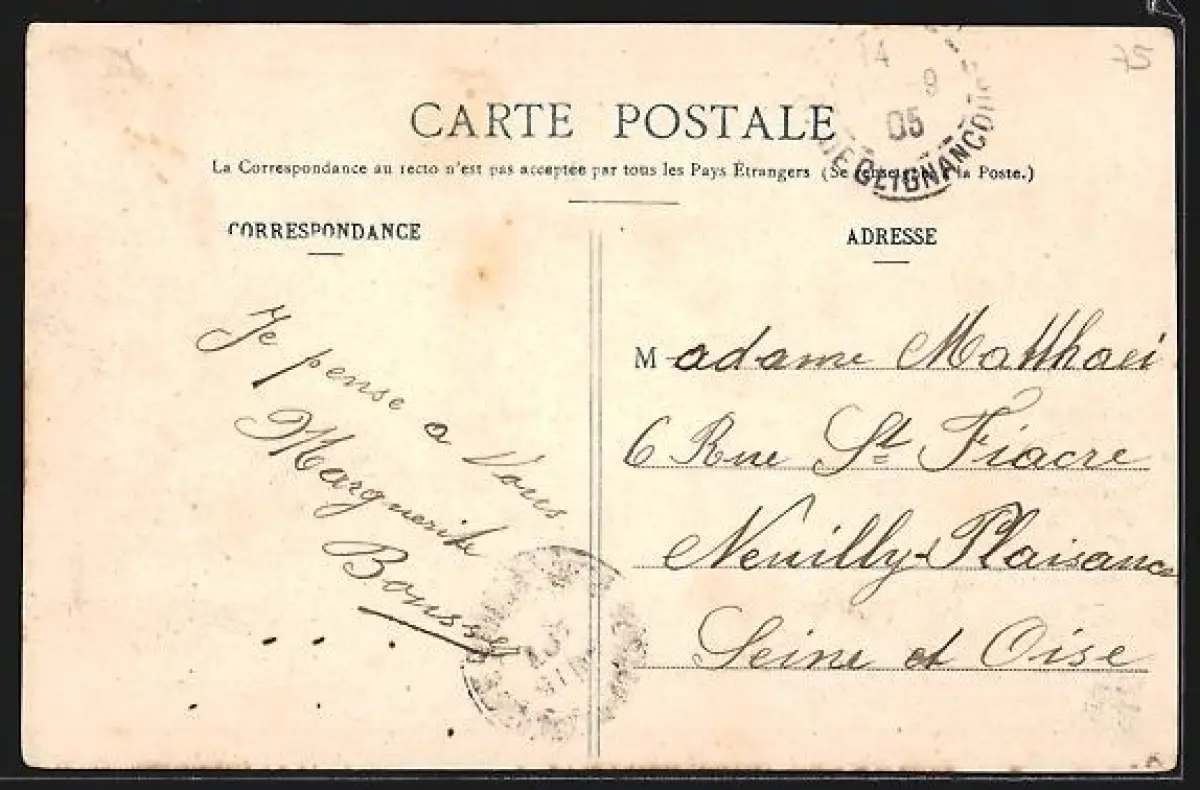 75
14
9
05
CLIGNANCOURT
CARTE POSTALE
La Correspondance au recto n'est pas acceptée par tous les Pays Etrangers (Se renseigner à la Poste.)
CORRESPONDANCE
Je pense a Vous
Marguerite
ADRESSE
Madame Matthaei
6 Rue St Fiacre
Neuilly-Plaisance
Seine et Oise